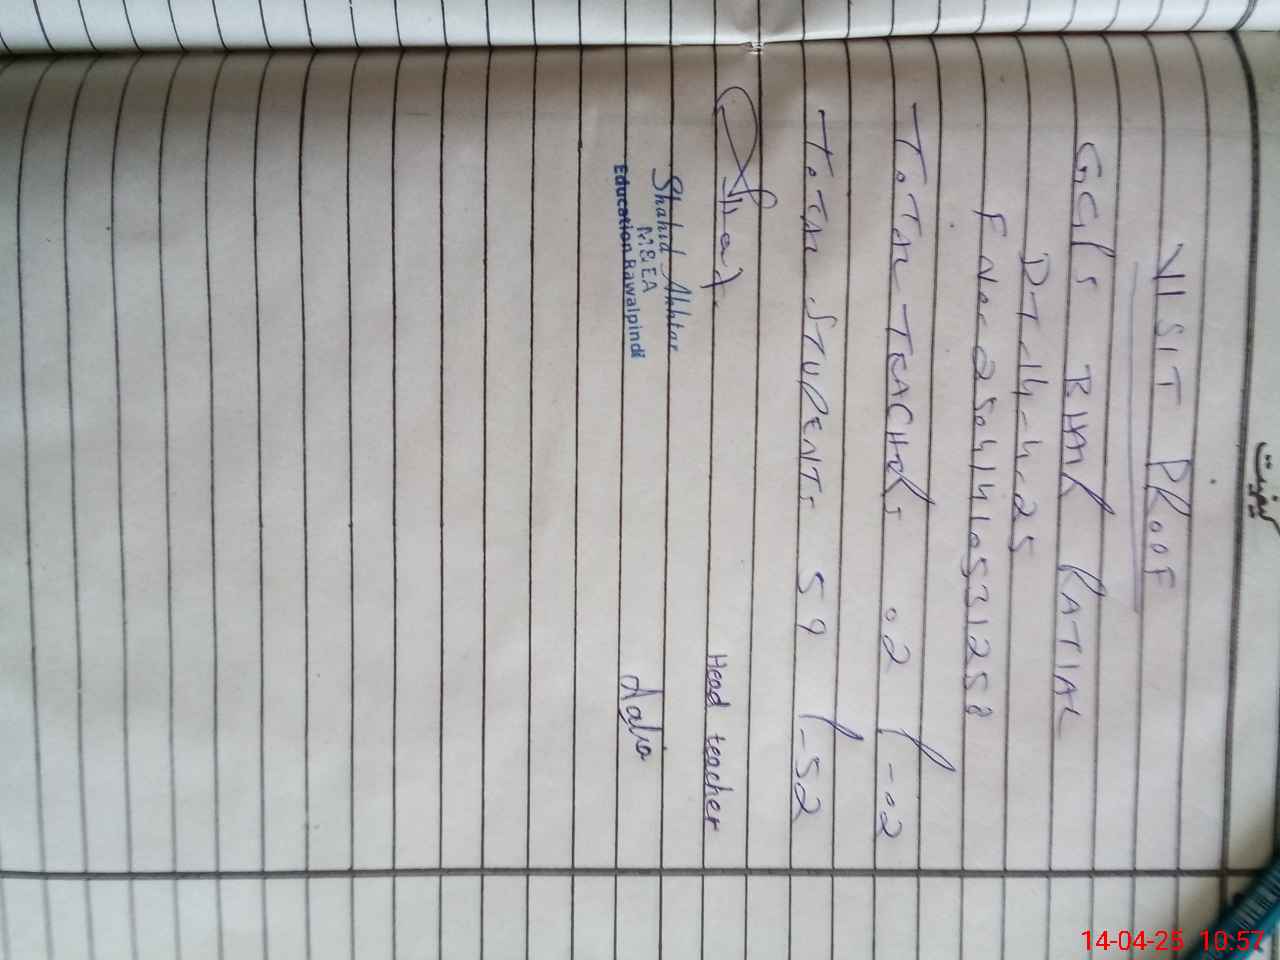 VISIT PROOF
GGPS BHAR RATIAL
DT-14-4-25
F No- 25041410531258
TOTAL TEACHERS 02 P-02
TOTAL STUDENTS 59 P-52
Head teacher
Shahid Akhtar
M&EA
Education Rawalpindi
Aalia
14-04-25 10:57